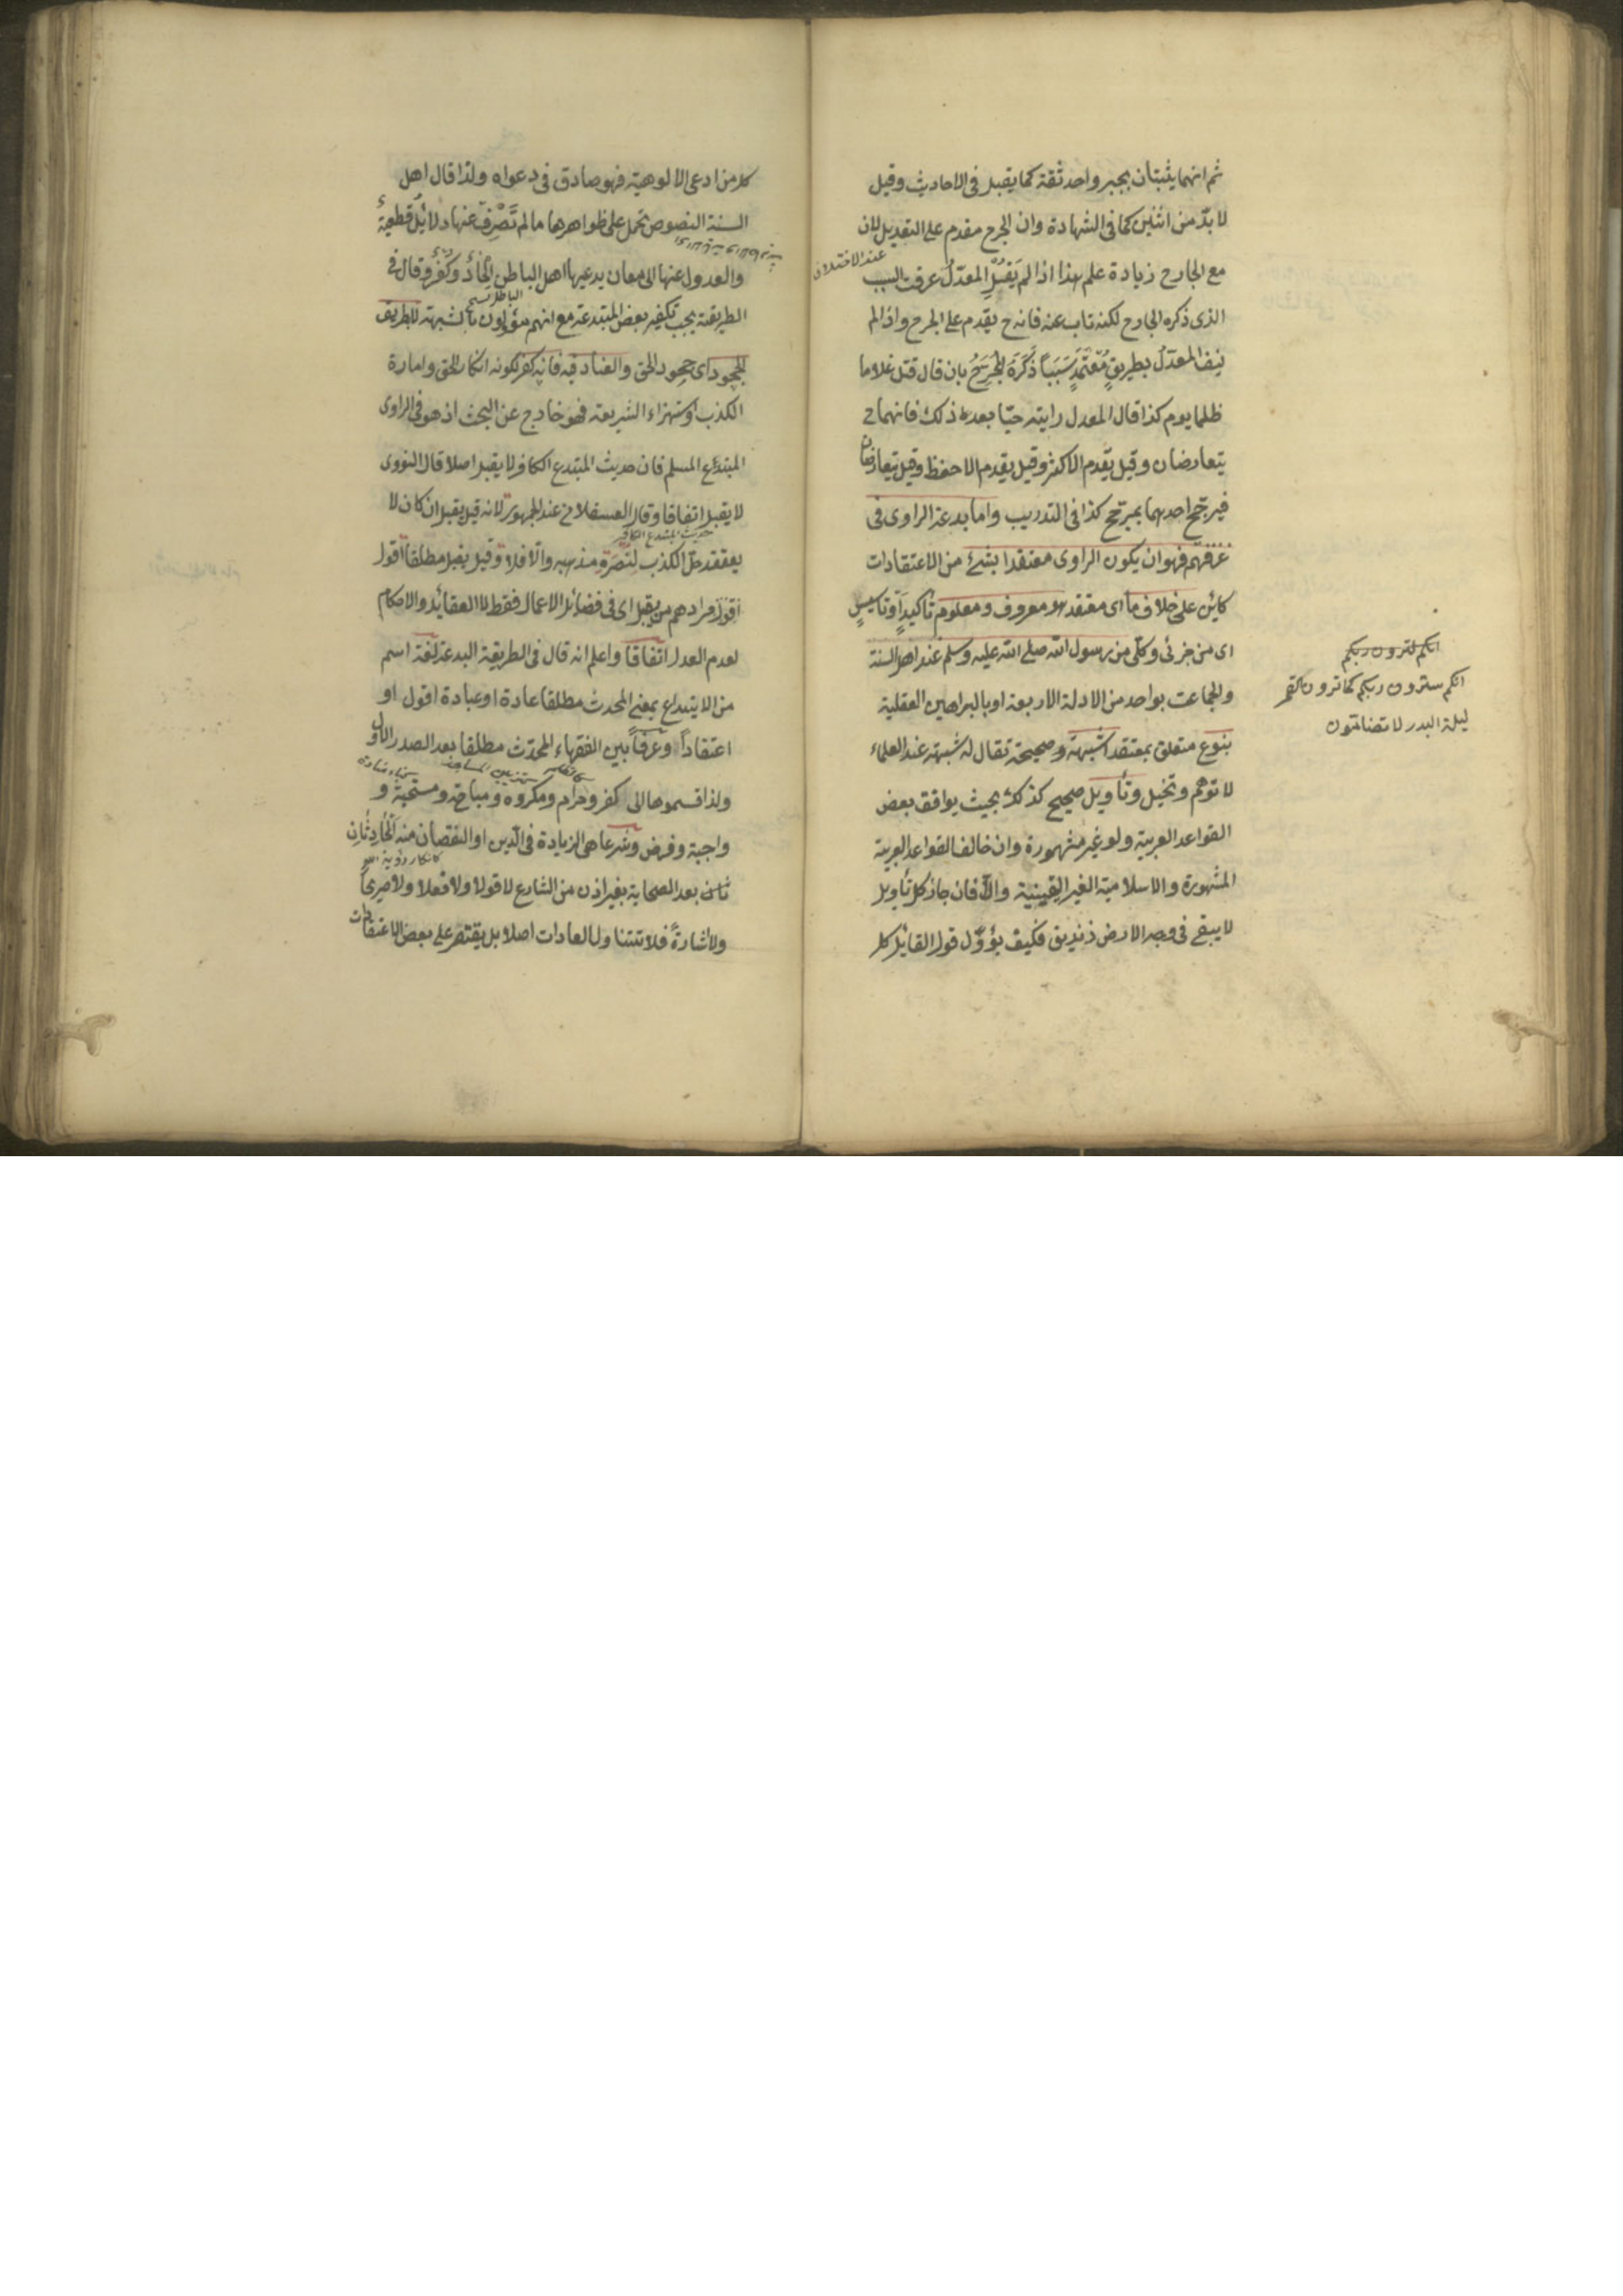 ثم انهما يثبتان بجبر واحد ثقة كما يقبل فى الاحاديث وقيل
لا بدّ من اثنين كما فى الشهادة وان الجرح مقدم على التعديل لان
عند الاختلاف
مع الجارح زيادة علم هذا اذا لم يَقُلِ المعدّلُ عرفت السبب
الذى ذكره الجارح لكنه تاب عنه فانه ح يقدم على الجرح واذا لم
ينف المعدّلُ بطريقٍ مُعْتَمَدٍ سَبَبَاً ذَكَرَهُ الجَرِحُ بان قال قتل غلاما
ظلما يوم كذا قال المعدل رايته حيّا بعد ذلك فانهما ح
يتعارضان وقيل يقدم الاكثر وقيل يقدم الاحفظ وقيل يتعارضان
فيرجّح احدهما بمرجّح كذا فى التدريب واما بدعة الراوى فى
عرفهم فهو ان يكون الراوى معتقدا بشئ من الاعتقادات
كائن على خلاف ما اى معتقد هو معروف ومعلوم تأكيداً وتأسيسٍ
اى من جزئى وكلّى من رسول الله صلى الله عليه وسلم عند اهل السنة
والجماعت بواحد من الادلة الاربعة او بالبراهين العقلية
بنوع متعلق بمعتقدا شبهة وصحيحة تقال له شبهة عند العلماء
لا توهّم وتخيل وتأويل صحيح كذلك بحيث يوافق بعض
القواعد العربية ولو غير مشهورة وان خالف القواعد العربية
المشهورة والاسلامية الغير اليقينية والّا فان جاز كل تأويل
لا يبقى فى وجه الارض زنديق فكيف يؤوّل قول القائل كل
انكم لترون ربكم
انكم سترون ربكم كما ترون القمر
ليلة البدر لا تضامّون
كل من ادعى الالوهية فهو صادق فى دعواه ولذا قال اهل
السنة النصوص تحمل على ظواهرها ما لم تَصْرِفْ عنها دلائلُ قطعيةٌ
والعدول عنها الى معان يدعيها اهل الباطن الحادٌ وكفرٌ وقال فى
الطريقة يجب تكفير بعض المبتدعة مع انهم مؤولون بالشبهة لا بطريق
الجحود اى جحود الحق والعناد فيه فانه كفر لكونه انكار الحق وامارة
الكذب او استهزاء الشريعة فهو خارج عن البحث اذ هو فى الراوى
المبتدع المسلم فان حديث المبتدع الكافر لا يقبل اصلا قال النووى
لا يقبل اتفاقا وقال العسقلانى عند الجمهور لانه قيل يقبل ان كان لا
حديث المبتدع الكافر
يعتقد حلّ الكذب لنُصْرَةِ مذهبه والّا فلا وقيل يقبل مطلقا اقول
اقول مرادهم من يقبل اى فى فضائل الاعمال فقط لا العقائد والاحكام
لعدم العدل اتفاقاً واعلم انه قال فى الطريقة البدعة لغة اسم
من الابتداع بمعنى المحدث مطلقا عادة او عبادة اقول او
اعتقاداً وعرفاً بين الفقهاء المحدَث مطلقا بعد الصدر الاول
ولذا قسموها الى كفر وحرام ومكروه ومباحة ومستحبة و
واجبة وفرض وشرعا هى الزيادة فى الدّين او النقصان منه الحَادِثَانِ
كانكار رؤية الله
ثان بعد الصحابة بغير اذن من الشارع لا قولا ولا فعلا ولا صريحاً
ولا اشارةً فلا تتناول العادات اصلا بل يقتصر على بعض الاعتقادات